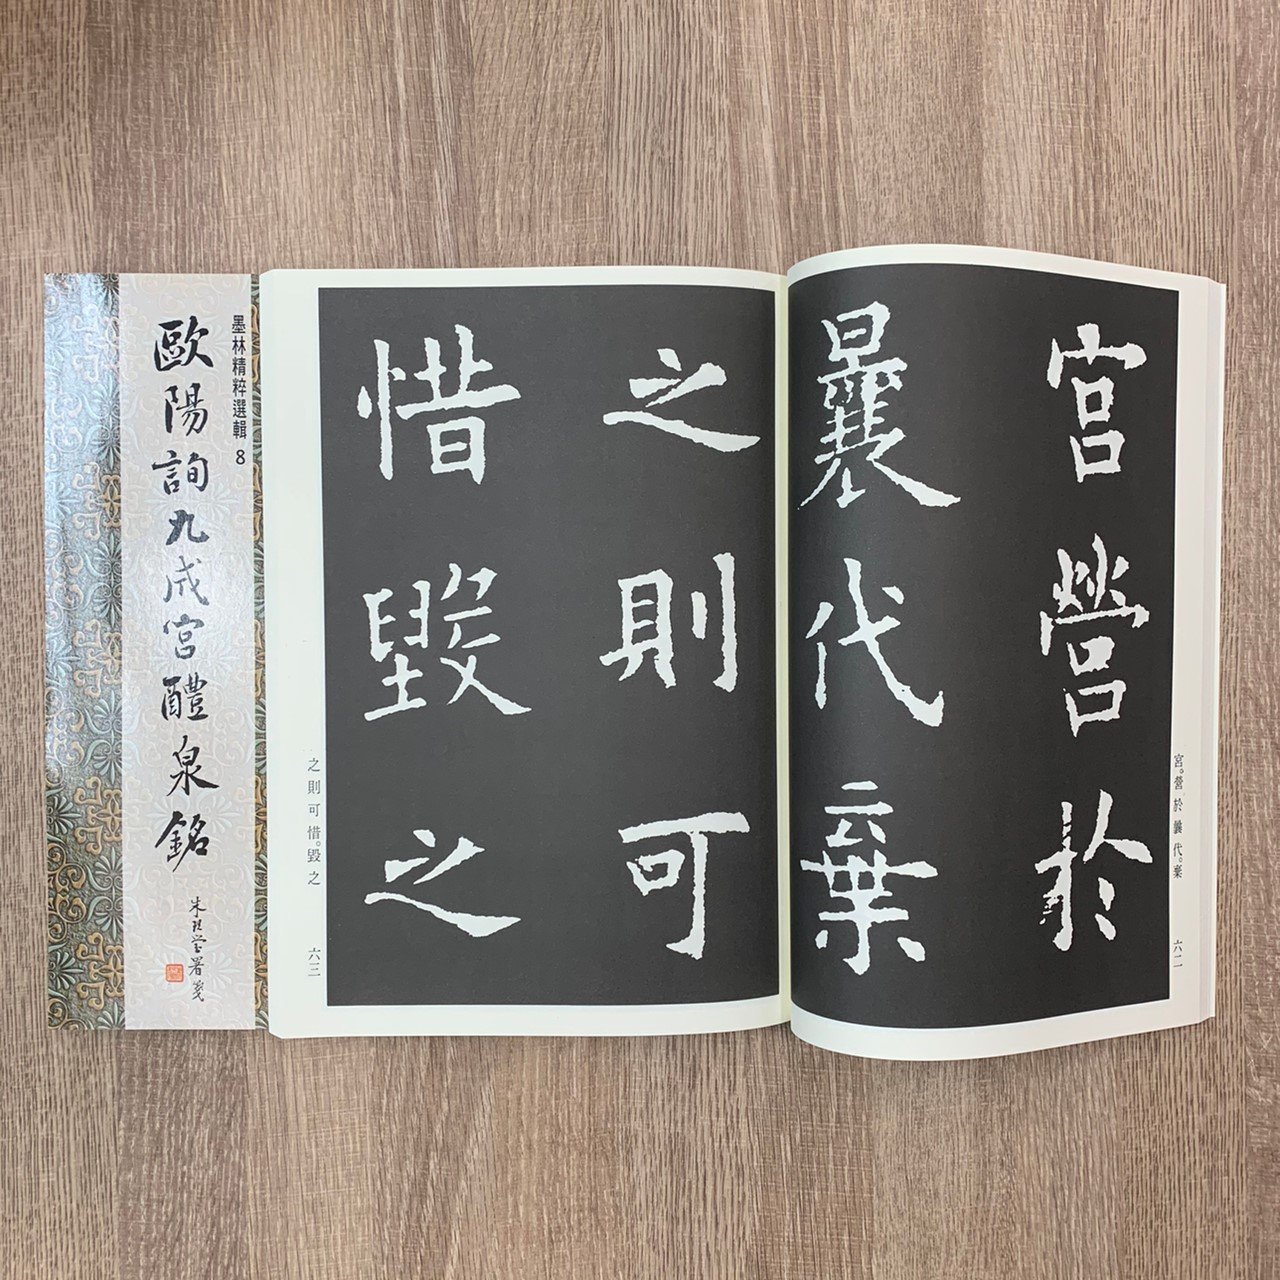 墨林精粹選輯 8
歐陽詢九成宮醴泉銘
朱玖瑩署箋
宮。營於曩代。棄
六二
宮營於
曩代棄
之則可
惜毀之
之則可惜。毀之
六三